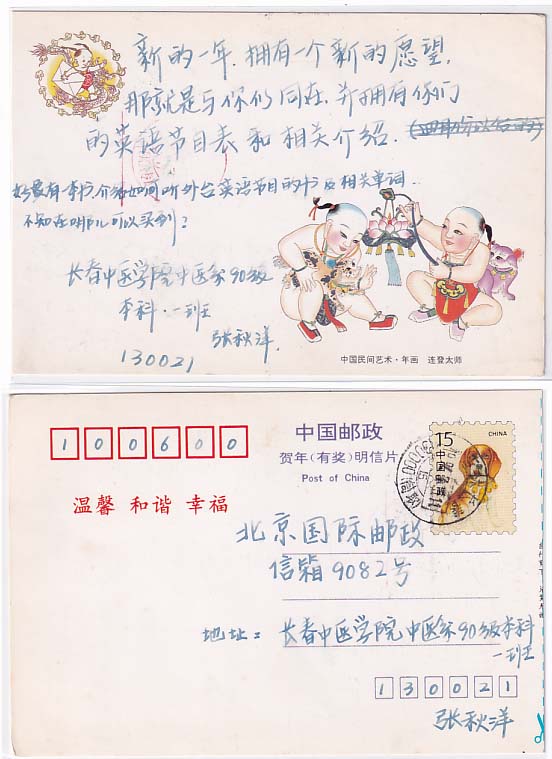 新的一年，拥有一个新的愿望，
那就是与你们同在，并拥有你们
的英语节目表和相关介绍．
有一本书介绍如何听外台英语节目的书及相关单词．
不知在哪儿可以买到？
长春中医学院中医系90级
本科·一班
张秋洋
130021
中国民间艺术·年画 连登太师
100600
中国邮政
贺年(有奖)明信片
Post of China
15
CHINA
中国邮政
温馨 和谐 幸福
北京国际邮政
信箱9082号
地址：长春中医学院中医系90级本科
一班
130021
张秋洋